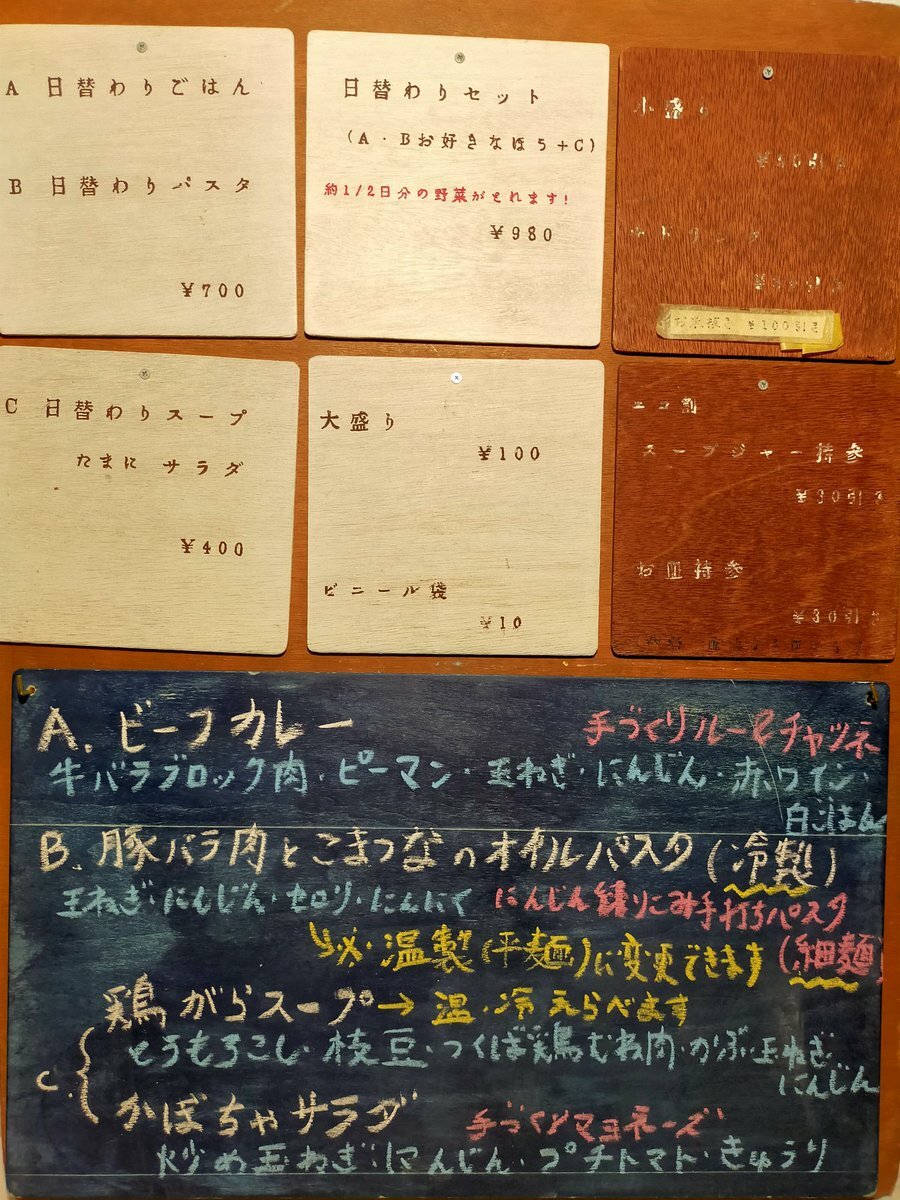 A 日替わりごはん
B 日替わりパスタ
¥700
日替わりセット
(A・Bお好きなほう+C)
約1/2日分の野菜がとれます!
¥980
小盛り
C 日替わりスープ
たまに サラダ
¥400
大盛り
¥100
ビニール袋
¥10
エコ割
スープジャー持参
¥30引き
お皿持参
¥30引き
A. ビーフカレー
手づくりルー&チャツネ
牛バラブロック肉・ピーマン・玉ねぎ・にんじん・赤ワイン・
白ごはん
B. 豚バラ肉とこまつなのオイルパスタ(冷製)
玉ねぎ・にんじん・セロリ・にんにく にんじん練りこみ手打ちパスタ
温製(平麺)に変更できます (細麺)
鶏がらスープ→温・冷えらべます
とうもろこし・枝豆・つくば鶏むね肉・かぶ・玉ねぎ・
にんじん
C.
かぼちゃサラダ 手づくりマヨネーズ
炒め玉ねぎ・にんじん・プチトマト・きゅうり